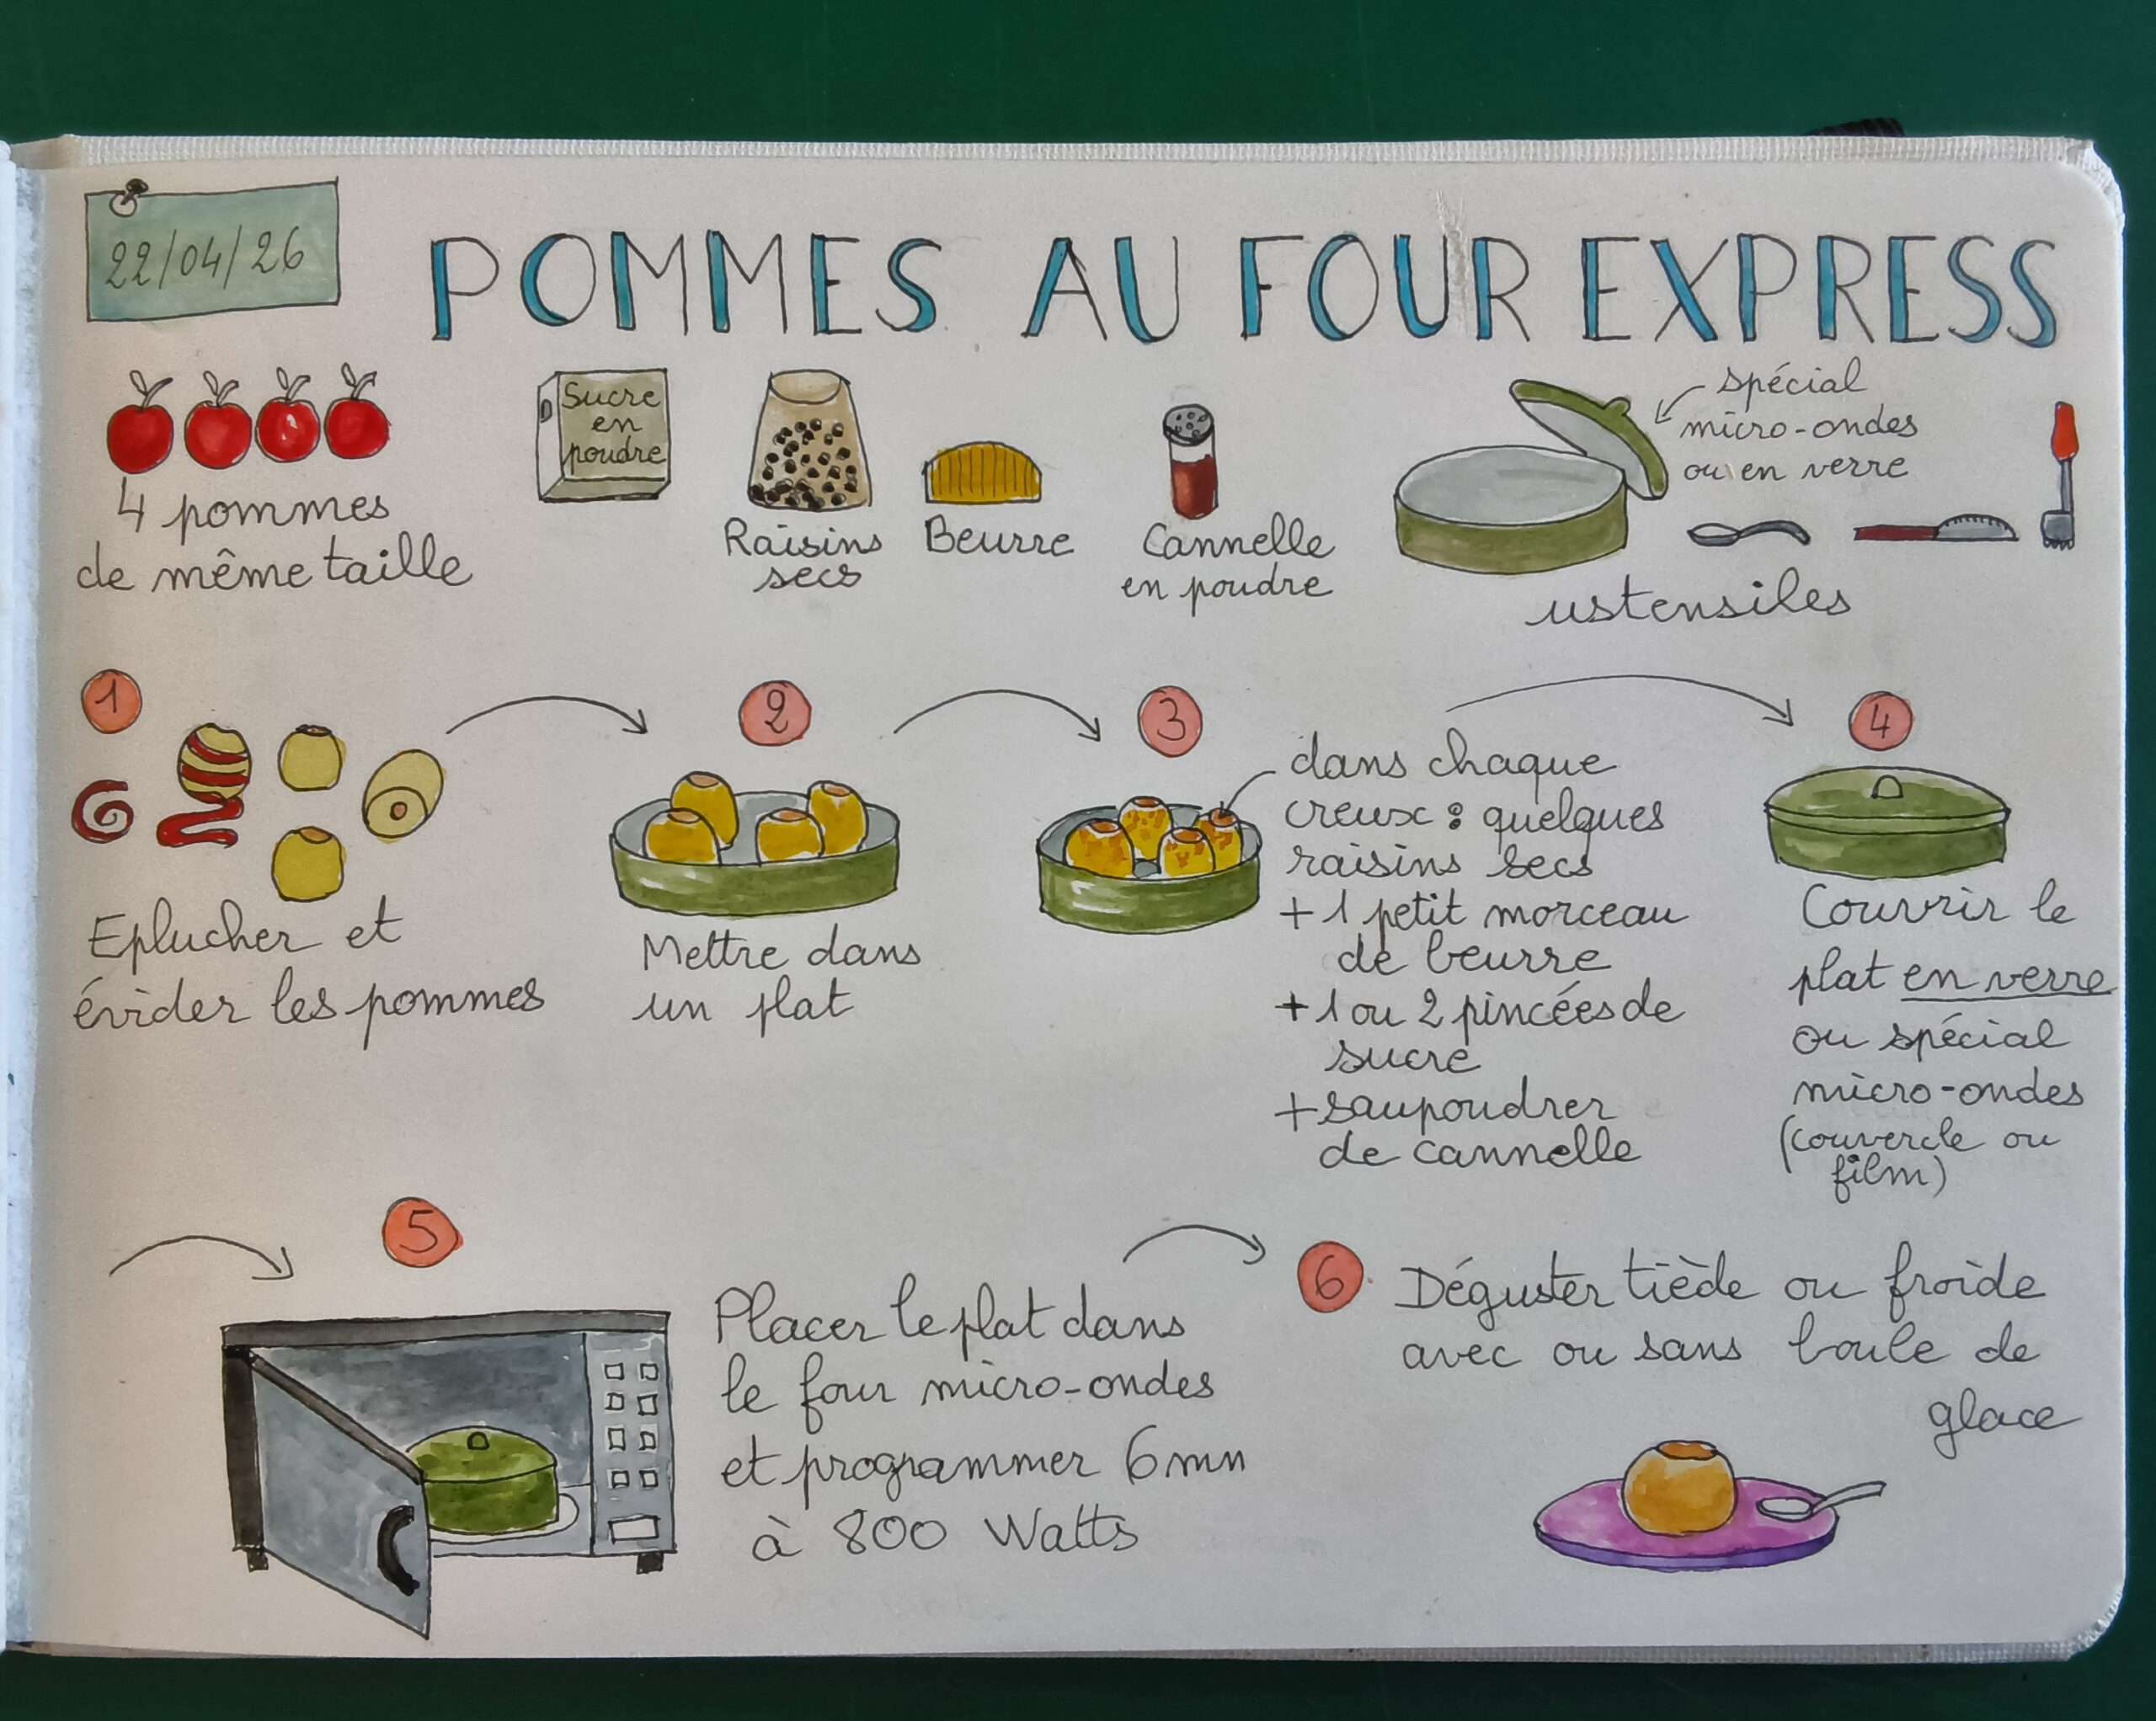 22/04/26
POMMES AU FOUR EXPRESS
4 pommes
de même taille
Sucre
en
poudre
Raisins
secs
Beurre
Cannelle
en poudre
spécial
micro-ondes
ou en verre
ustensiles
1
Eplucher et
évider les pommes
2
Mettre dans
un plat
3
dans chaque
creux : quelques
raisins secs
+ 1 petit morceau
de beurre
+ 1 ou 2 pincées de
sucre
+ saupoudrer
de cannelle
4
Couvrir le
plat en verre
ou spécial
micro-ondes
(couvercle ou
film)
5
Placer le plat dans
le four micro-ondes
et programmer 6mn
à 800 Watts
6
Déguster tiède ou froide
avec ou sans boule de
glace